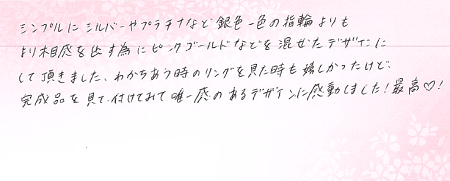 シンプルにシルバーやプラチナなど銀色一色の指輪よりも
より相感を出す為にピンクゴールドなどを混ぜたデザインに
して頂きました、わかちあう時のリングを見た時も嬉しかったけど、
完成品を見て、付けてみて唯一感のあるデザインに感動しました!最高♡!